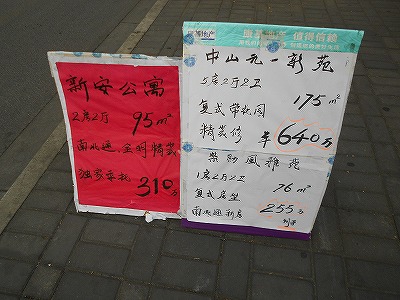 新安公寓
2房2厅 95m²
南北通.全明精装
独家委托 310万
地产 值得信赖
中山元一新苑
5房2厅2卫
175m²
复式带花园
精装修 640万
1房2厅2卫
复式房型 76m²
南北通新房 255万